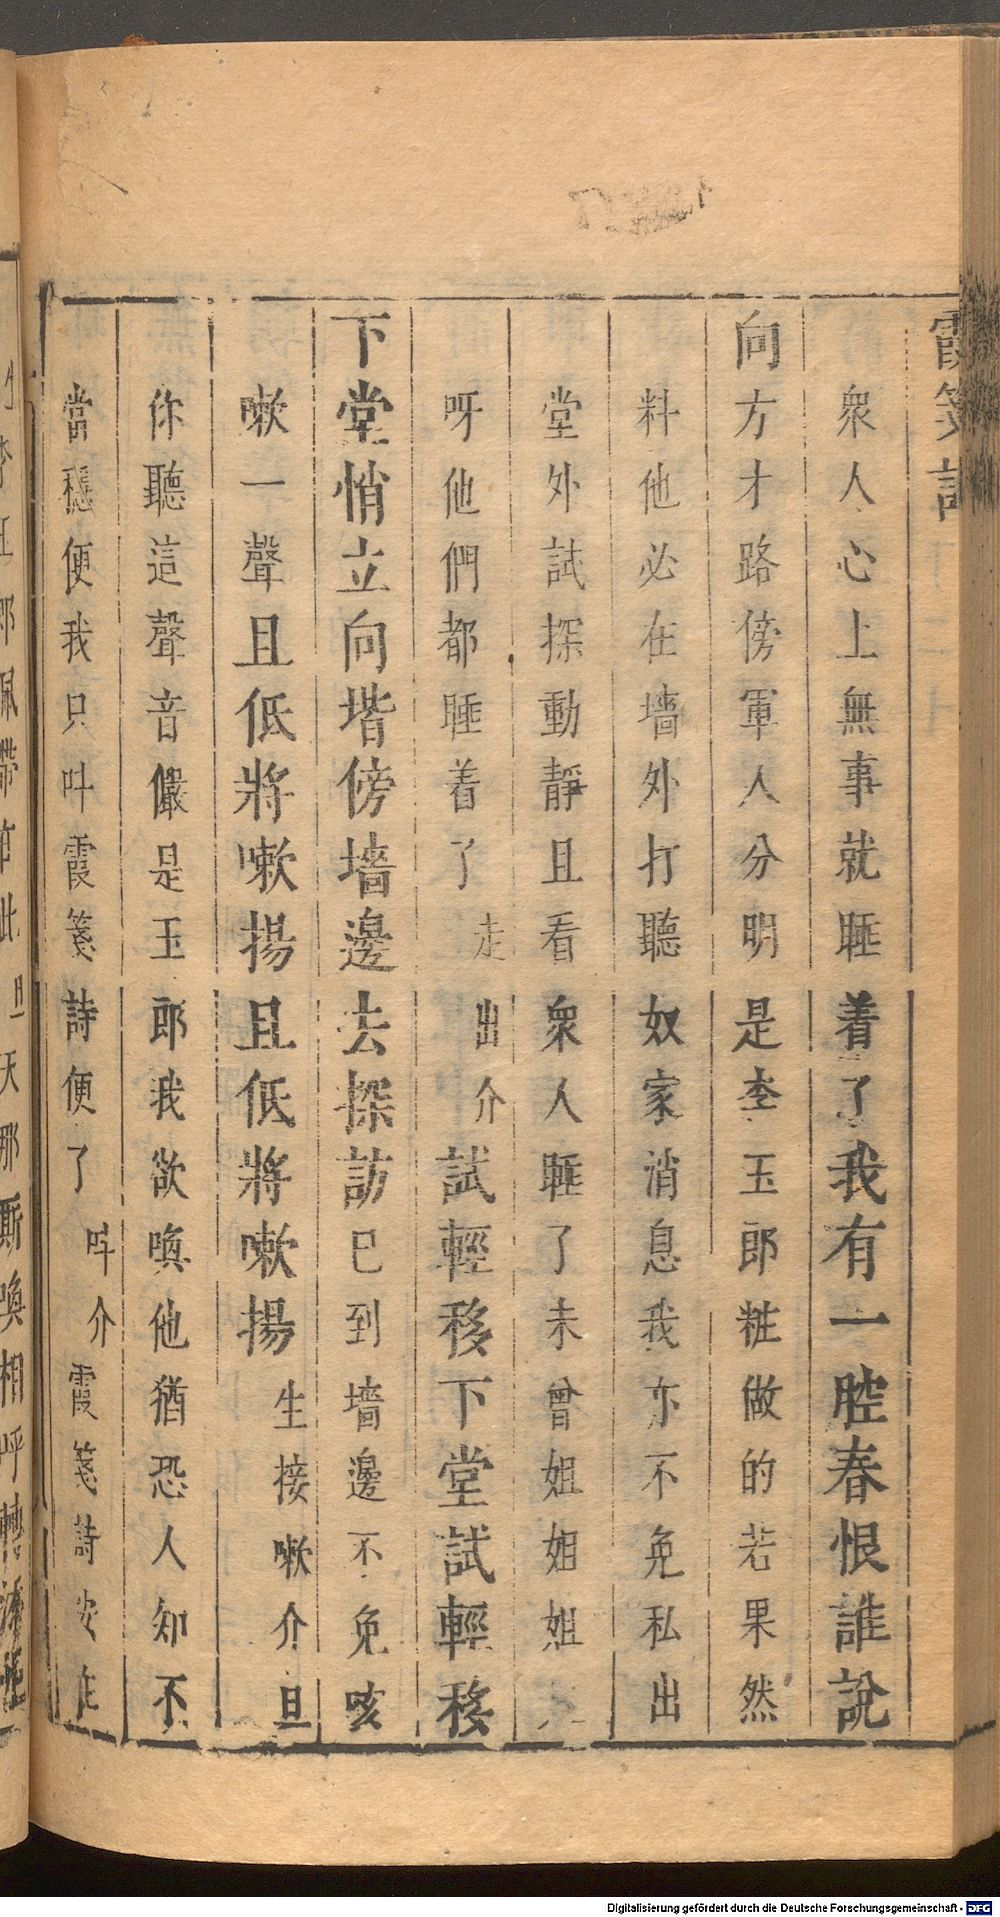 霞箋記
衆人心上無事就睡着了我有一腔春恨誰說
向方才路傍軍人分明是李玉郎粧做的若果然
料他必在墻外打聽奴家消息我亦不免私出
堂外試探動靜且看衆人睡了未曾姐姐姐
呀他們都睡着了走出介試輕移下堂試輕移
下堂悄立向堦傍墻邊去探訪已到墻邊不免咳
嗽一聲且低將嗽揚且低將嗽揚生接嗽介旦
你聽這聲音儼是玉郎我欲喚他猶恐人知不
當穩便我只叫霞箋詩便了叫介霞箋詩安在
Digitalisierung gefördert durch die Deutsche Forschungsgemeinschaft - DFG